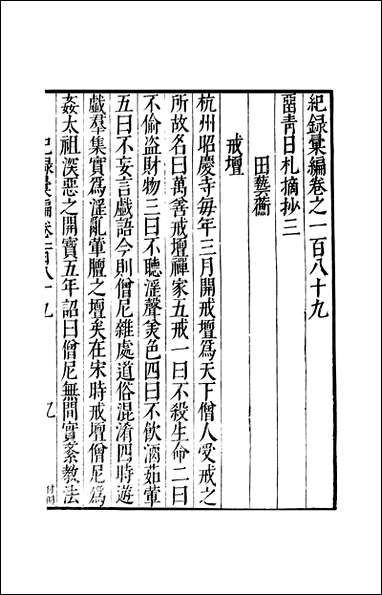 紀録彚編卷之一百八十九
畱青日札摘抄三
田藝蘅
戒壇
杭州昭慶寺每年三月開戒壇爲天下僧人受戒之
所故名曰萬善戒壇禪家五戒一曰不殺生命二曰
不偷盜財物三曰不聽淫聲美色四曰不飲酒茹葷
五曰不妄言戲語今則僧尼雜處道俗混淆四時遊
戲羣集實爲淫亂葷膻之壇矣在宋時戒壇僧尼爲
姦太祖深惡之開寶五年詔曰僧尼無間實紊教法
紀録彚編 卷一百八十九